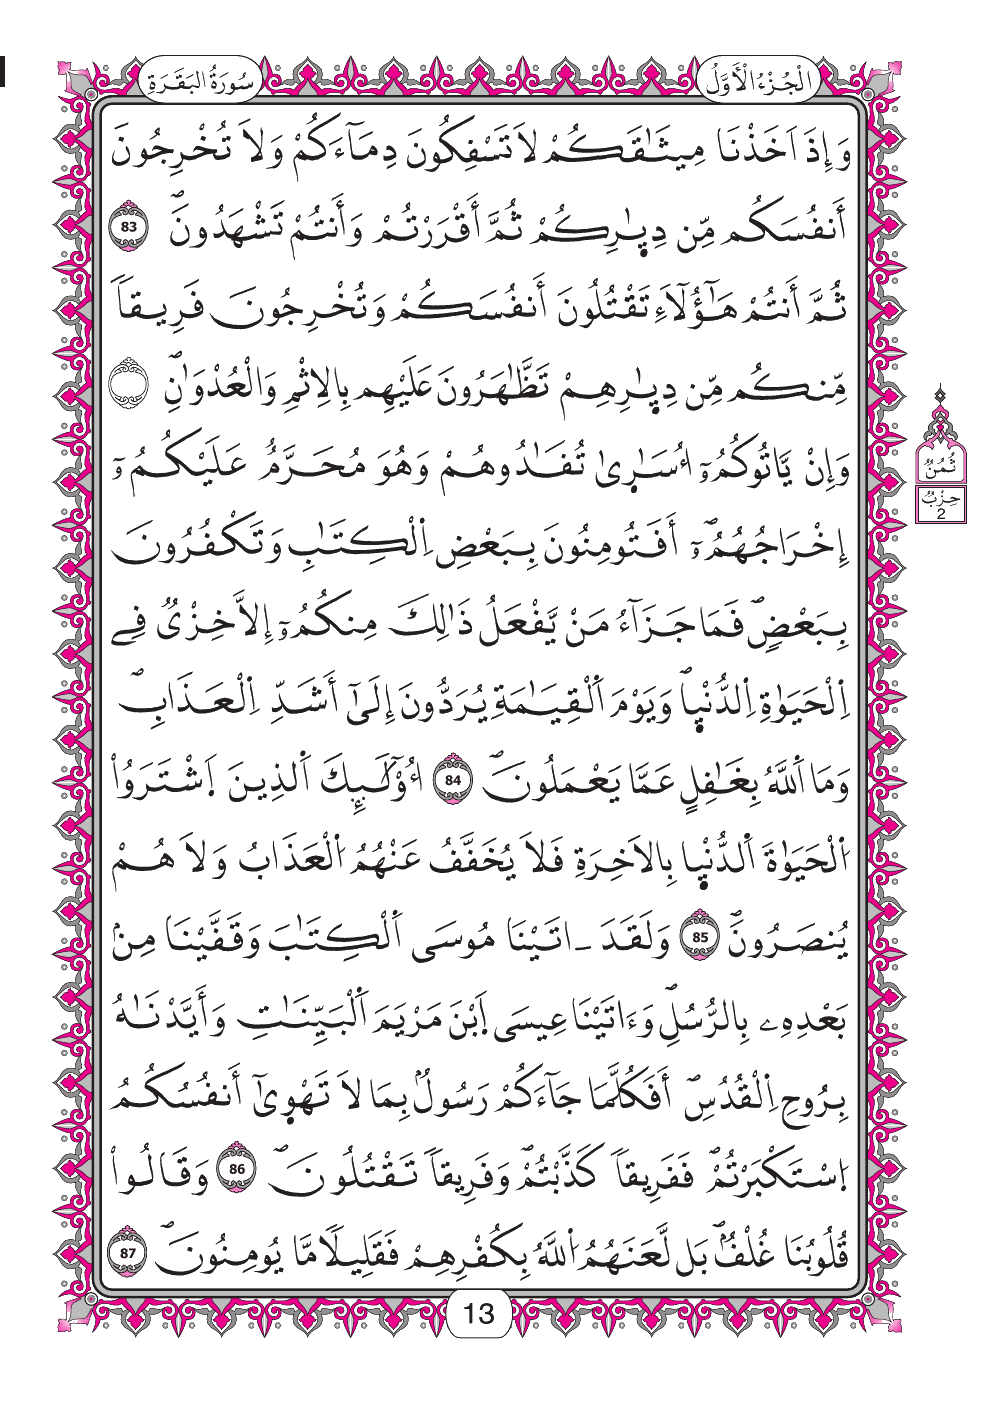 الْجُزْءُ الْأَوَّلُ
سُورَةُ البَقَرَةِ
وَإِذَ اَخَذْنَا مِيثَٰقَكُمْ لَا تَسْفِكُونَ دِمَآءَكُمْ وَلَا تُخْرِجُونَ
أَنفُسَكُم مِّن دِيٰ۪رِكُمْ ثُمَّ أَقْرَرْتُمْ وَأَنتُمْ تَشْهَدُونَۖ 83
ثُمَّ أَنتُمْ هَٰٓؤُلَآءِ تَقْتُلُونَ أَنفُسَكُمْ وَتُخْرِجُونَ فَرِيقاٗ
مِّنكُم مِّن دِيٰ۪رِهِمْ تَظَّٰهَرُونَ عَلَيْهِم بِالِاثْمِ وَالْعُدْوَٰنِۖ
وَإِنْ يَّاتُوكُمُۥٓ أُسَٰر۪يٰ تُفَٰدُوهُمْ وَهُوَ مُحَرَّمٌ عَلَيْكُمُۥٓ
إِخْرَاجُهُمُۥٓۖ أَفَتُومِنُونَ بِبَعْضِ اِ۬لْكِتَٰبِ وَتَكْفُرُونَ
بِبَعْضٖۖ فَمَا جَزَآءُ مَنْ يَّفْعَلُ ذَٰلِكَ مِنكُمُۥٓ إِلَّا خِزْيٞ فِے
اِ۬لْحَيَوٰةِ اِ۬لدُّنْي۪اۖ وَيَوْمَ اَ۬لْقِيَٰمَةِ يُرَدُّونَ إِلَىٰٓ أَشَدِّ اِ۬لْعَذَابِۖ
وَمَا اَ۬للَّهُ بِغَٰفِلٍ عَمَّا يَعْمَلُونَۖ 84 أُوْلَٰٓئِكَ اَ۬لذِينَ اَ۪شْتَرَوُاْ
اُ۬لْحَيَوٰةَ اَ۬لدُّنْي۪ا بِالَاخِرَةِ فَلَا يُخَفَّفُ عَنْهُمُ اُ۬لْعَذَابُ وَلَا هُمْ
يُنصَرُونَۖ 85 وَلَقَدَ ـ اتَيْنَا مُوسَى اَ۬لْكِتَٰبَ وَقَفَّيْنَا مِنۢ
بَعْدِهِۦ بِالرُّسُلِۖ وَءَاتَيْنَا عِيسَى اَ۪بْنَ مَرْيَمَ اَ۬لْبَيِّنَٰتِ وَأَيَّدْنَٰهُ
بِرُوحِ اِ۬لْقُدُسِۖ أَفَكُلَّمَا جَآءَكُمْ رَسُولُۢ بِمَا لَا تَهْو۪يٰٓ أَنفُسُكُمُ
اُ۪سْتَكْبَرْتُمْۖ فَفَرِيقاٗ كَذَّبْتُمْۖ وَفَرِيقاٗ تَقْتُلُونَۖ 86 وَقَالُواْ
قُلُوبُنَا غُلْفُۢۖ بَل لَّعَنَهُمُ اُ۬للَّهُ بِكُفْرِهِمْ فَقَلِيلٗا مَّا يُومِنُونَۖ 87
ثُمُنُ
حِزْبُ
2
13